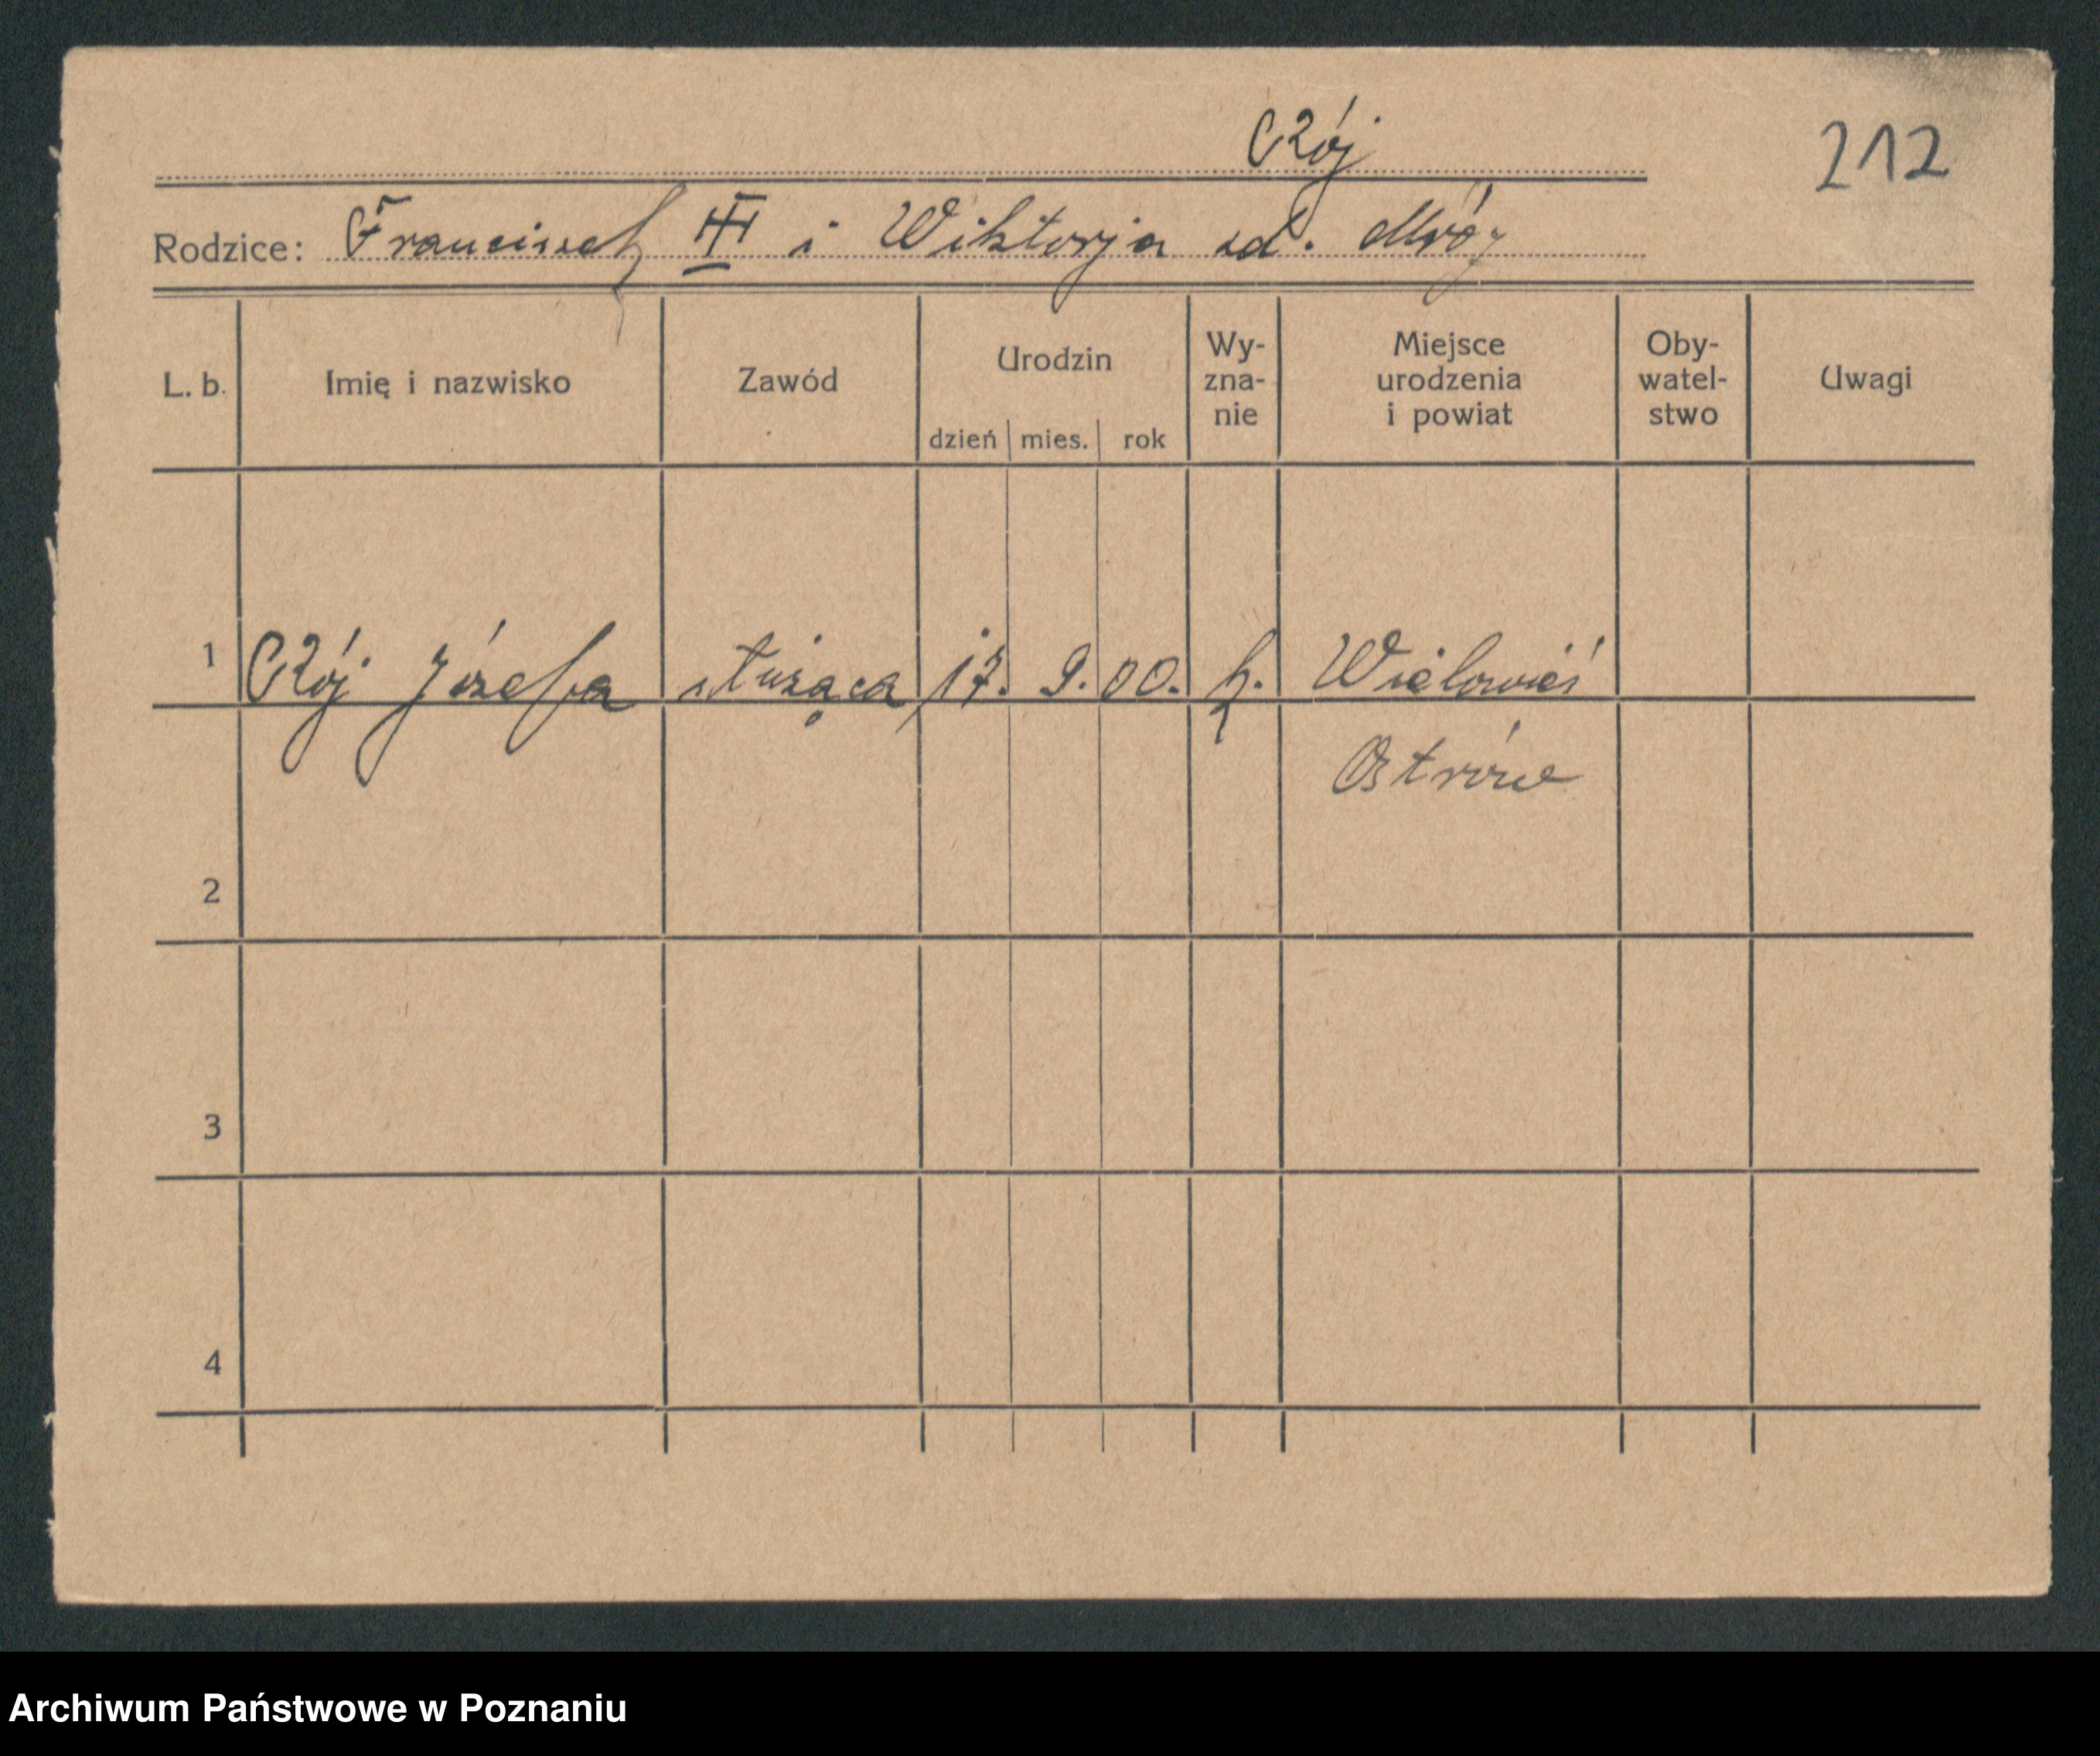 Czój
212
Rodzice: Franciszek III i Wiktorja zd. Mróz
L. b. Imię i nazwisko Zawód Urodzin dzień mies. rok Wy-zna-nie Miejsce urodzenia i powiat Oby-watel-stwo Uwagi
1 Czój Józefa służąca 17. 9. 00. k. Wielowieś
Ostrów
2
3
4
Archiwum Państwowe w Poznaniu